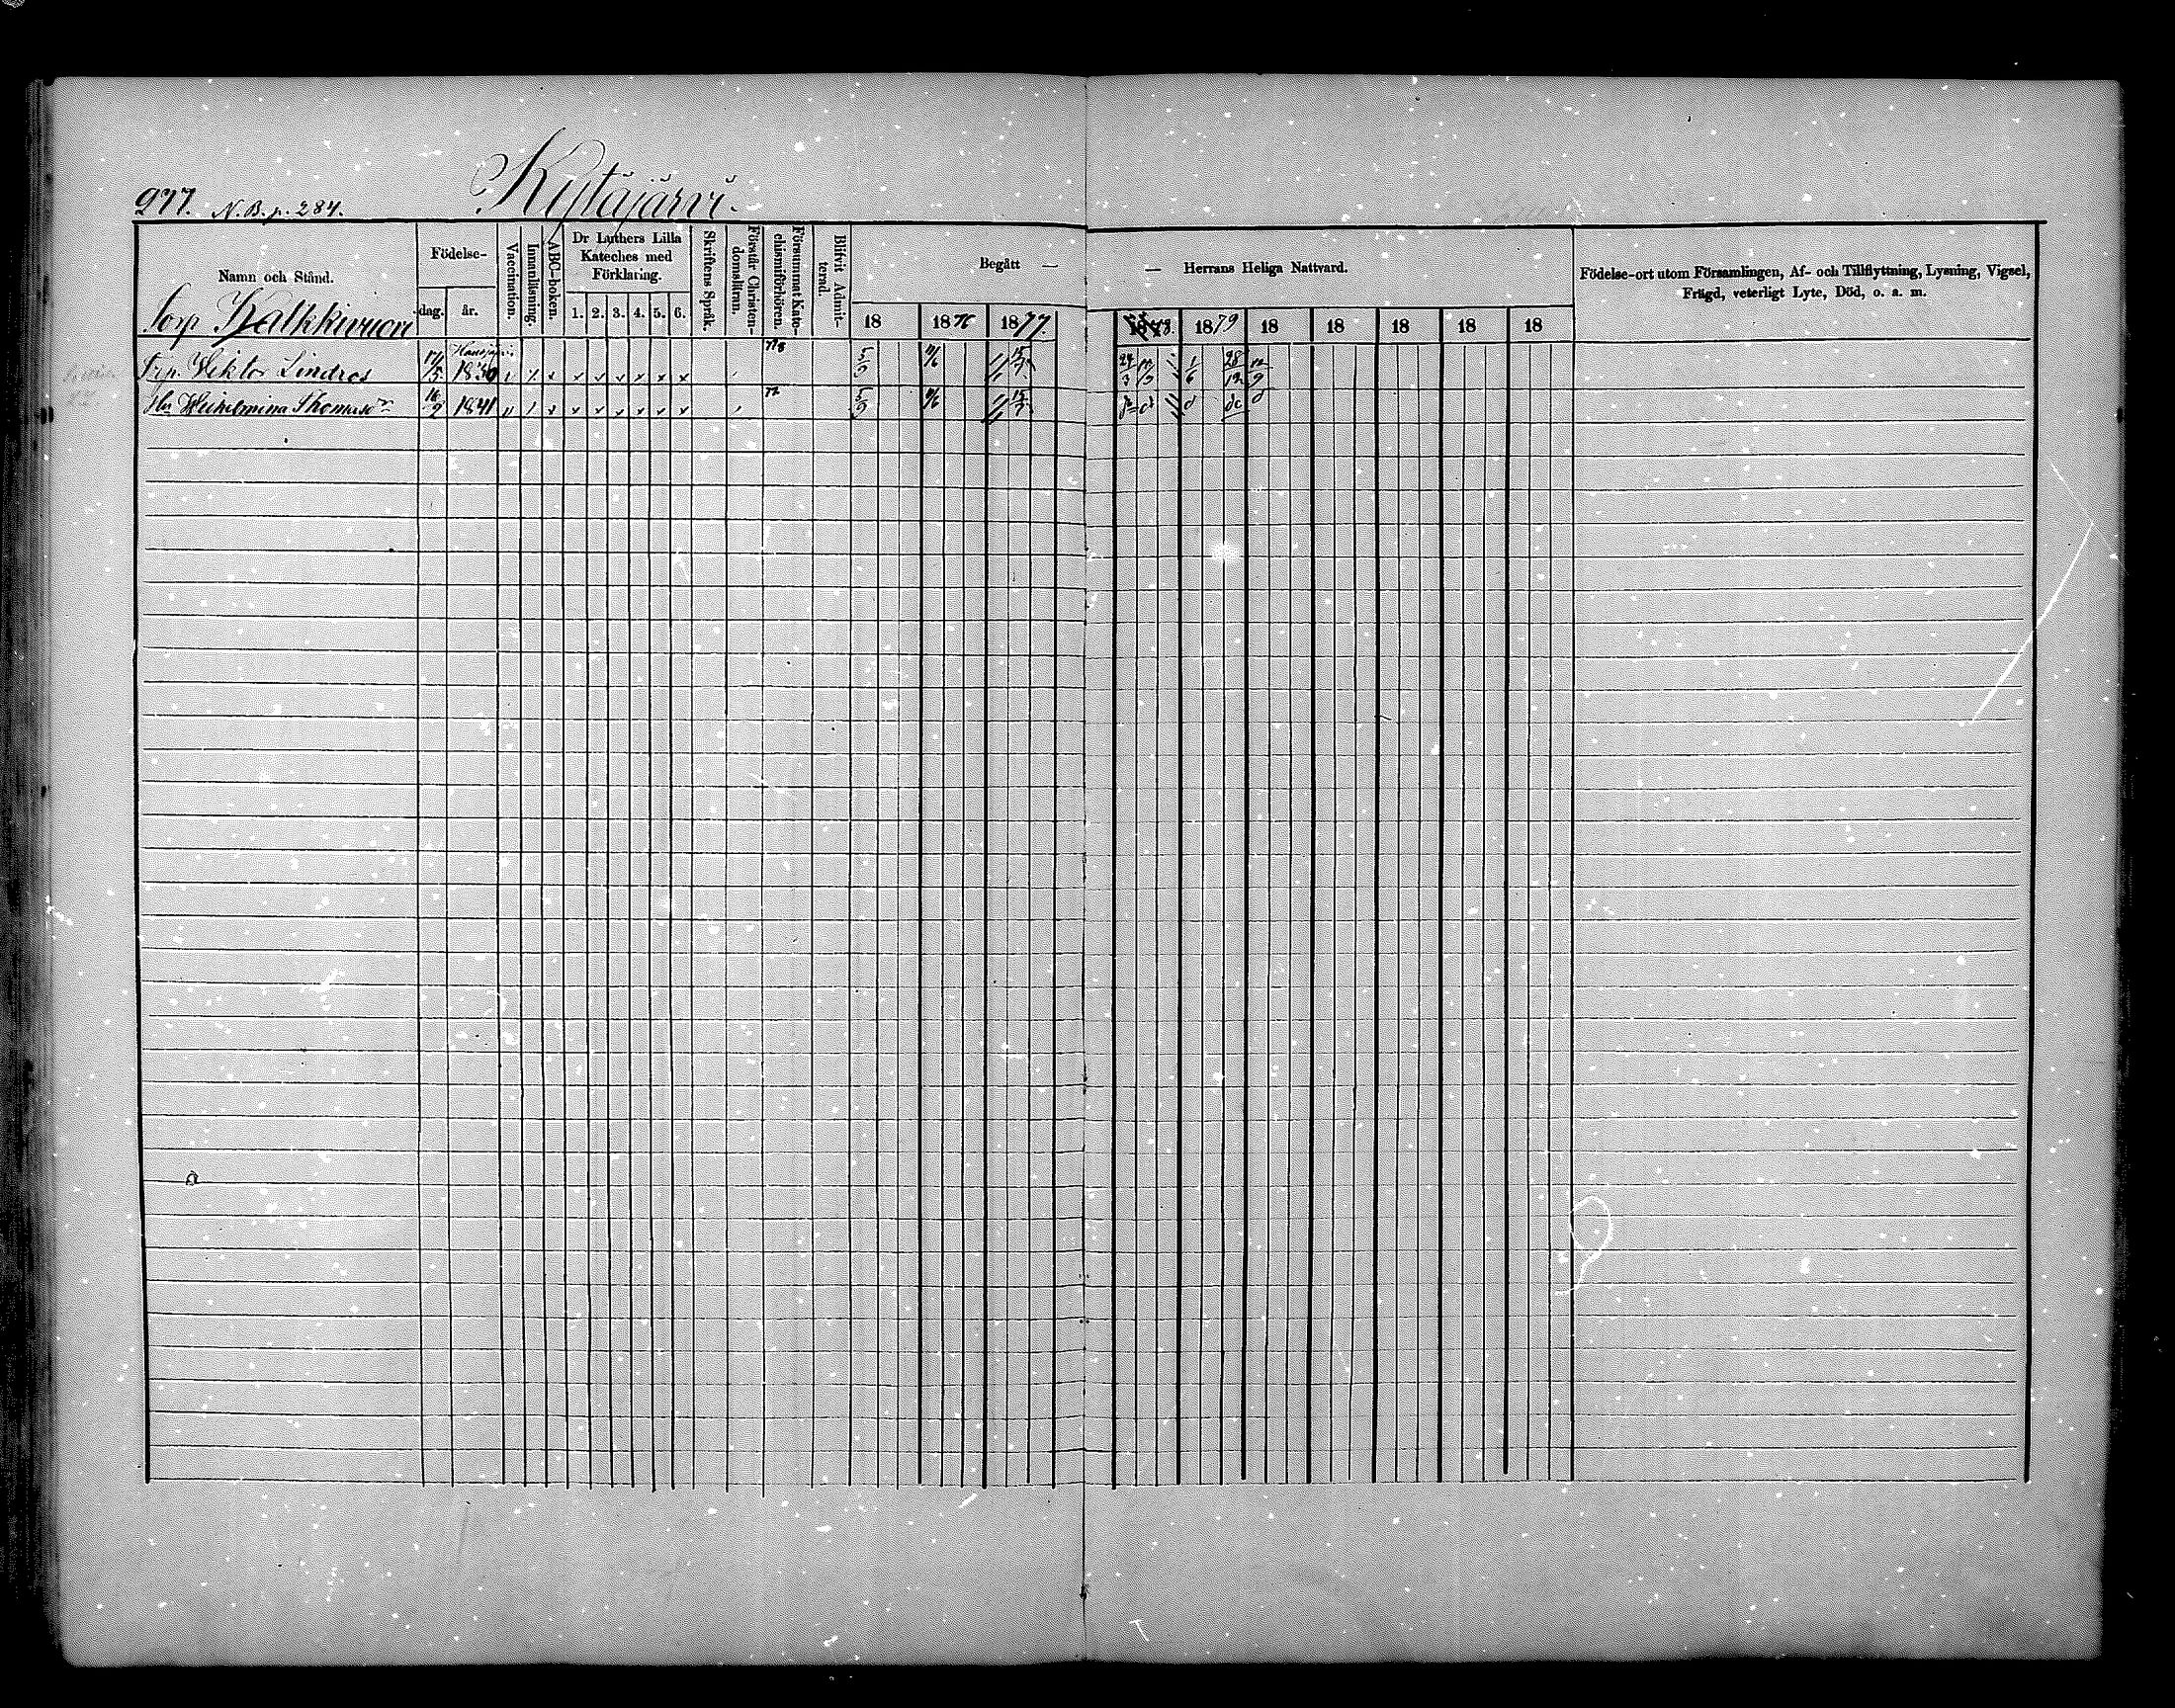 277. N.B. p. 284. Kytäjärvi.
Namn och Stånd.
Födelse-
dag. år.
Vaccination.
Innanläsning.
ABC-boken.
Dr Luthers Lilla
Kateches med
Förklaring.
1. 2. 3. 4. 5. 6.
Skriftens Språk.
Förstår Christen-
domsläran.
Försummat Kate-
chismiförhören.
Blifvit Admit-
terad.
Begått —
— Herrans Heliga Nattvard.
18 1876 1877. 1878. 1879 18 18 18 18 18
Födelse-ort utom Församlingen, Af- och Tillflyttning, Lysning, Vigsel,
Frägd, veterligt Lyte, Död, o. a. m.
Torp Kalkkivuori
Hausjärvi
Trp. Wiktor Lindros 1830 5/9 24/3 1/6 28/12
Hu Wilhelmina Thomasdr 16/9 1841 5/9